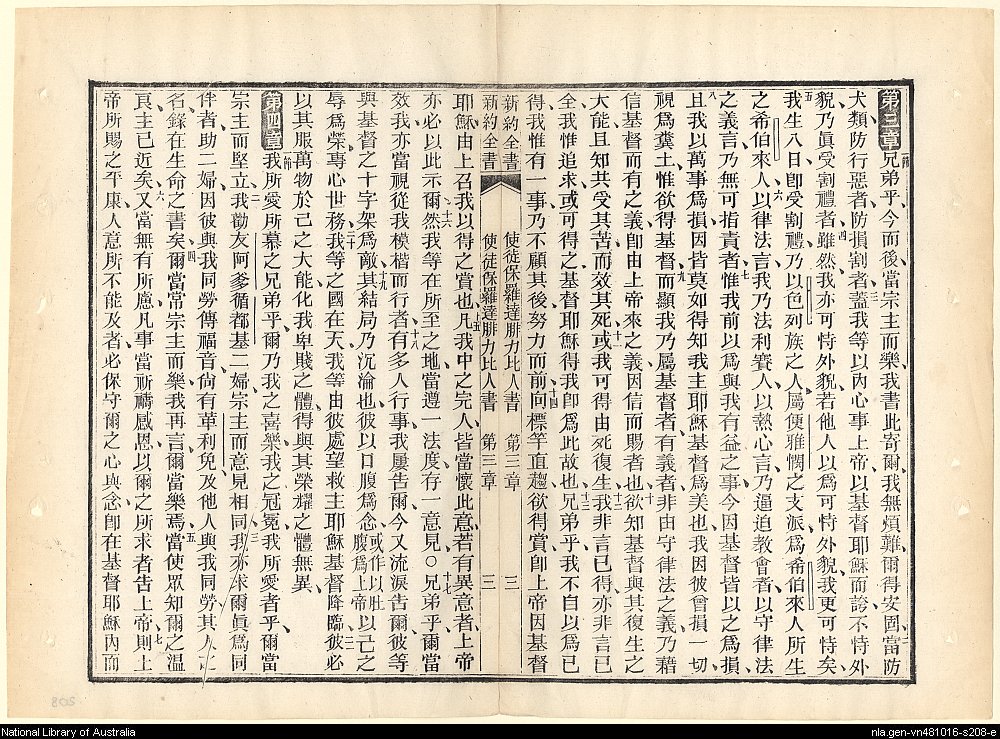 第三章兄弟乎今而後當宗主而樂我書此寄爾我無煩難爾得安固當防
犬類防行惡者防損割者蓋我等以內心事上帝以基督耶穌而誇不恃外
貌乃眞受割禮者雖然我亦可恃外貌若他人以爲可恃外貌我更可恃矣
我生八日卽受割禮乃以色列族之人屬便雅憫之支派爲希伯來人所生
之希伯來人以律法言我乃法利賽人以熱心言乃逼迫教會者以守律法
之義言乃無可指責者惟我前以爲與我有益之事今因基督皆以之爲損
且我以萬事爲損因皆莫如得知我主耶穌基督爲美也我因彼曾損一切
視爲糞土惟欲得基督而顯我乃屬基督者有義者非由守律法之義乃藉
信基督而有之義卽由上帝來之義因信而賜者也欲知基督與其復生之
大能且知共受其苦而效其死或我可得由死復生我非言已得亦非言已
全我惟追求或可得之基督耶穌得我卽爲此故也兄弟乎我不自以爲已
得我惟有一事乃不顧其後努力而前向標竿直趨欲得賞卽上帝因基督
新約全書 使徒保羅達腓力比人書 第三章 三
新約全書 使徒保羅達腓力比人書 第三章 三
耶穌由上召我以得之賞也凡我中之完人皆當懷此意若有異意者上帝
亦必以此示爾然我等在所至之地當遵一法度存一意見○兄弟乎爾當
效我亦當視從我模楷而行者有多人行事我屢告爾今又流淚告爾彼等
與基督之十字架爲敵其結局乃沉淪也彼以口腹爲念或作以肚腹爲上帝以己之
辱爲榮專心世務我等之國在天我等由彼處望救主耶穌基督降臨彼必
以其服萬物於己之大能化我卑賤之體得與其榮耀之體無異
第四章我所愛所慕之兄弟乎爾乃我之喜樂我之冠冕我所愛者乎爾當
宗主而堅立我勸友阿爹循都基二婦宗主而意見相同我亦求爾眞爲同
伴者助二婦因彼與我同勞傳福音尙有革利免及他人與我同勞其人之
名錄在生命之書矣爾當常宗主而樂我再言爾當樂焉當使眾知爾之溫
良主已近矣又當無有所慮凡事當祈禱感恩以爾之所求者告上帝則上
帝所賜之平康人意所不能及者必保守爾之心與念卽在基督耶穌內而
National Library of Australia
nla.gen-vn481016-s208-e